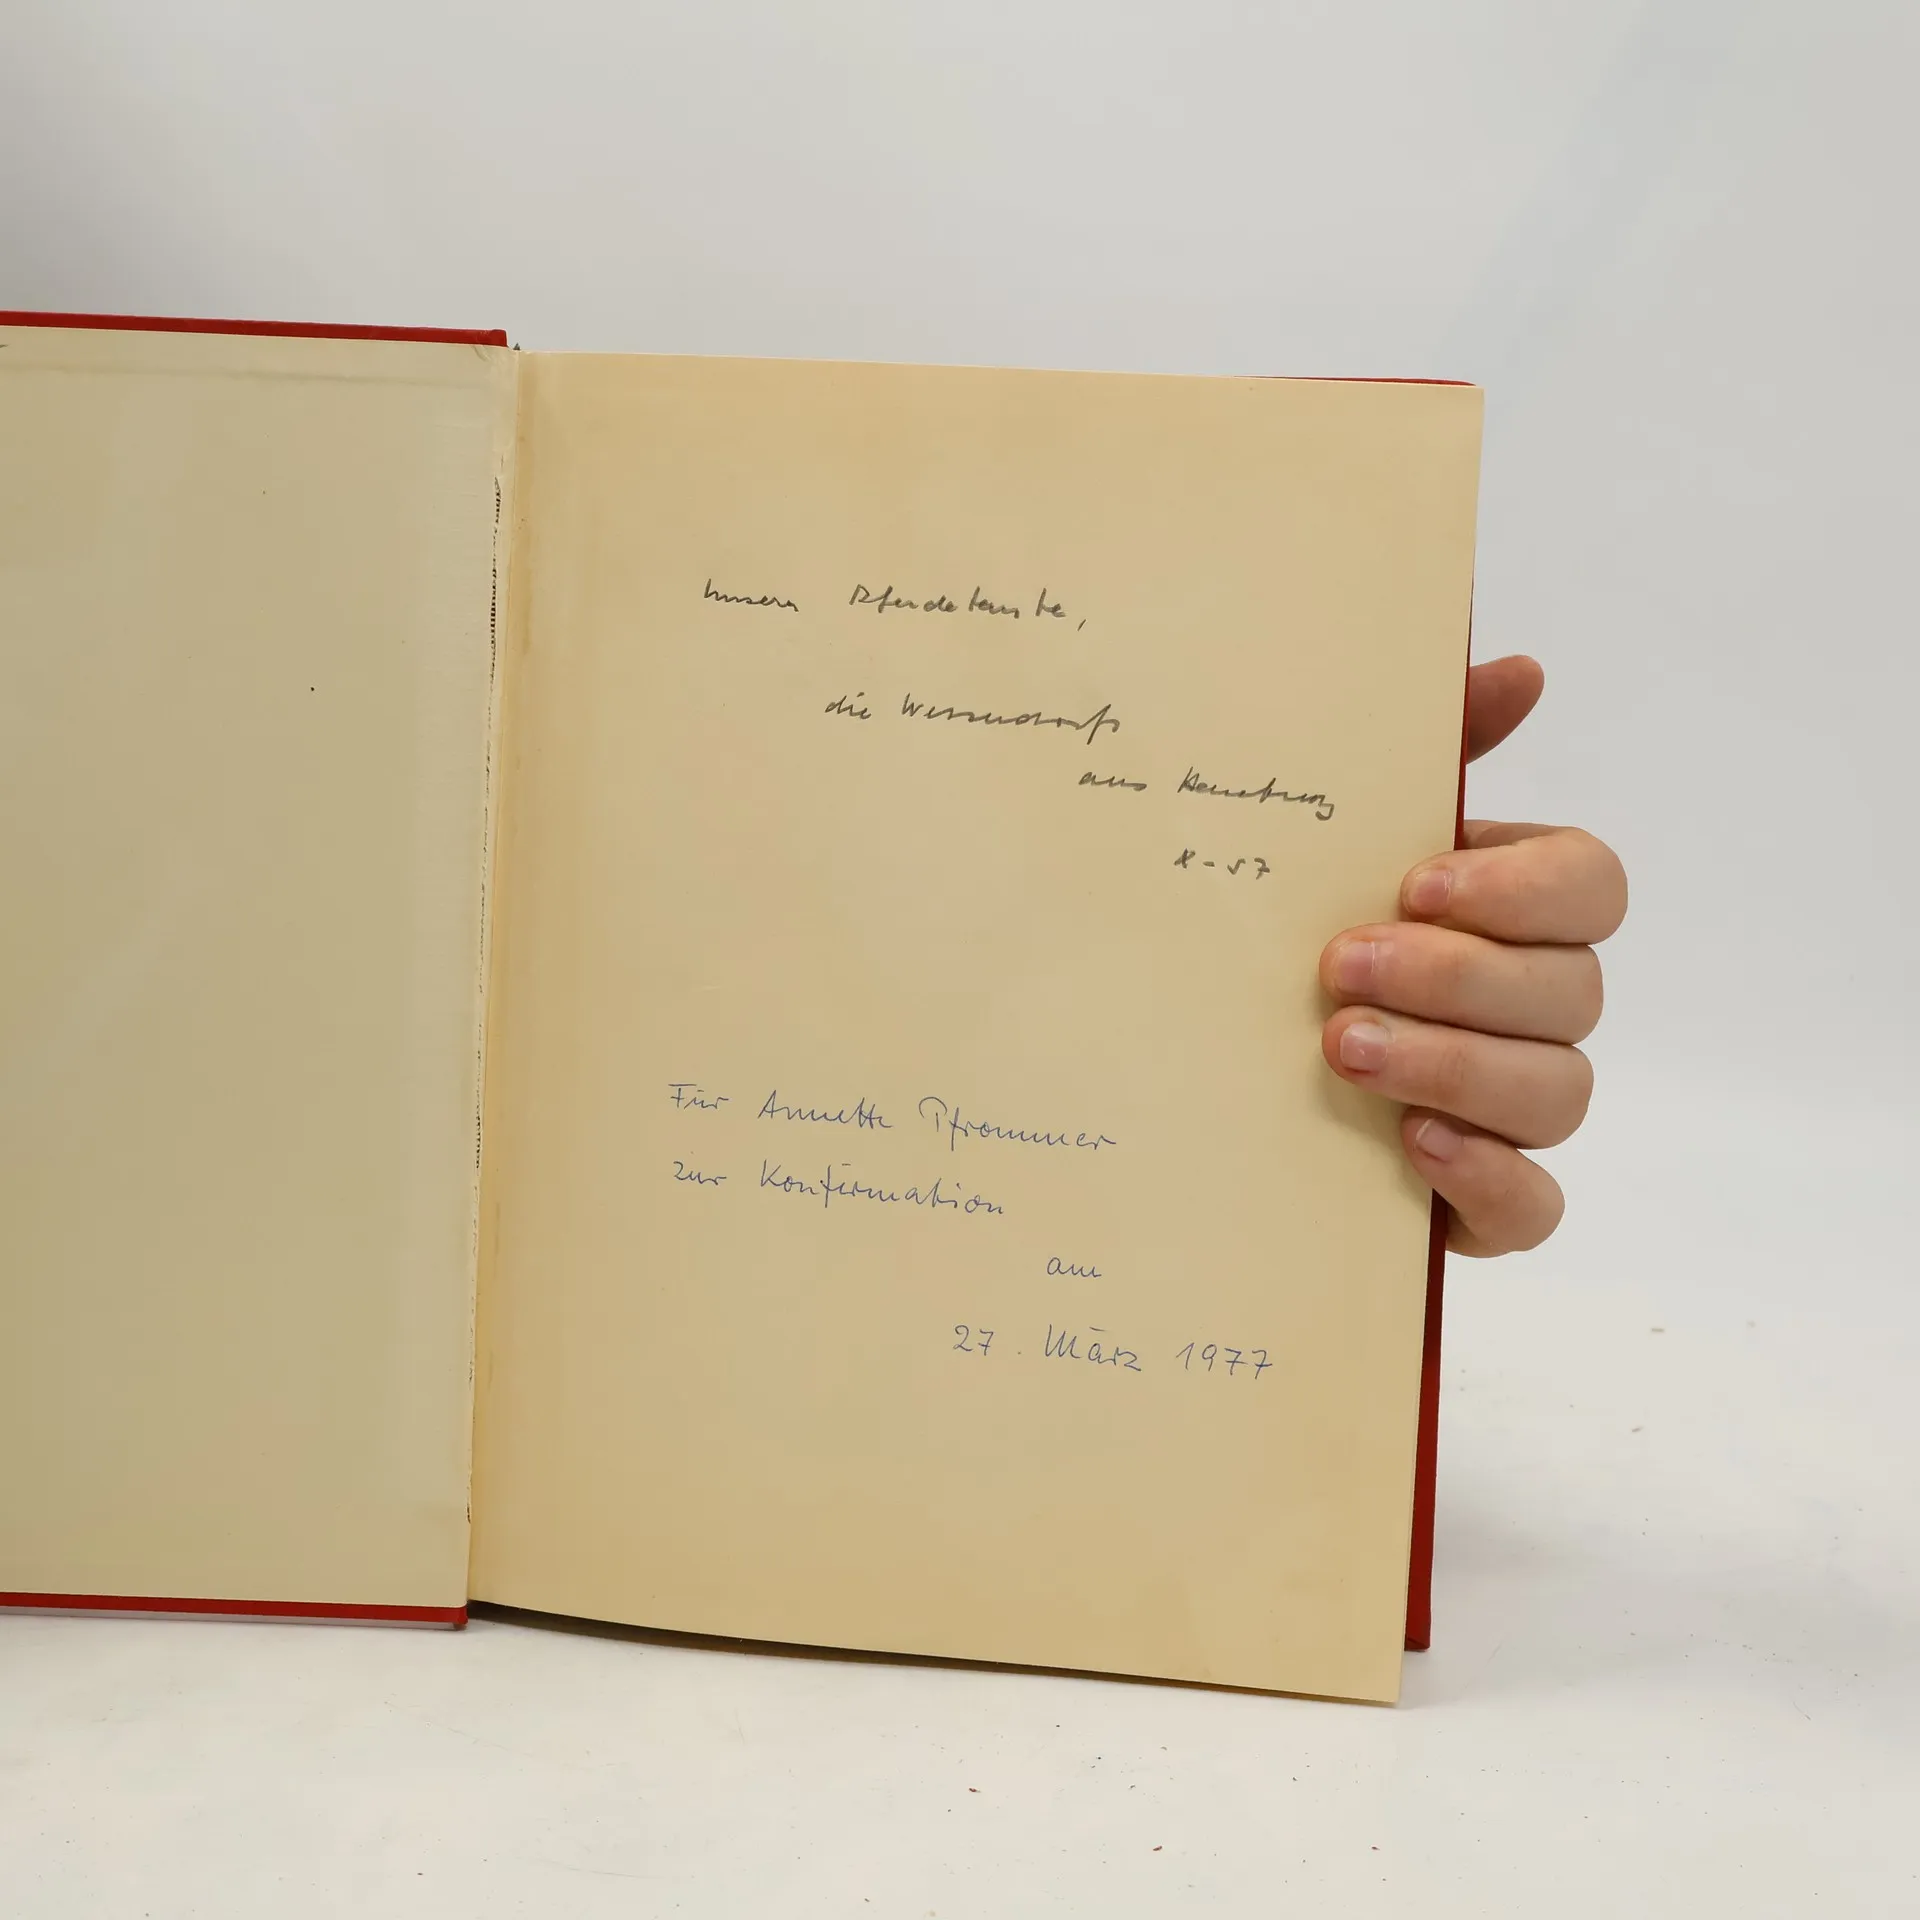 unserer Pferdetante,
die Wessendorfs
aus Hamburg
X-57
Für Annette Pfrommer
zur Konfirmation
am
27. März 1977